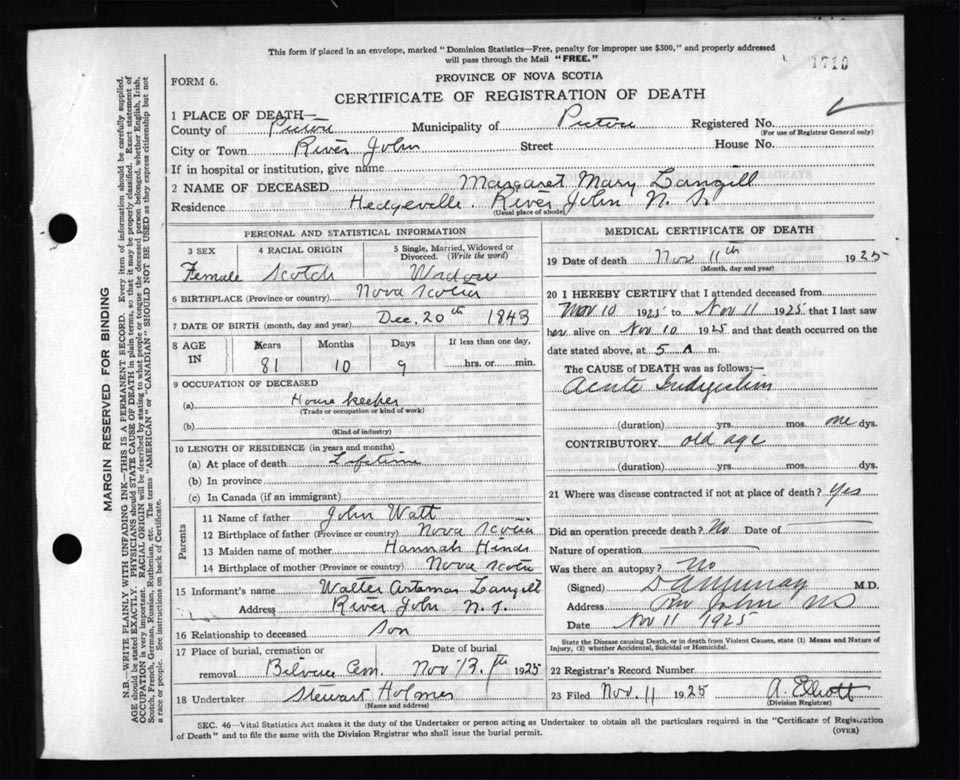 This form if placed in an envelope, marked "Dominion Statistics—Free, penalty for improper use $300," and properly addressed
will pass through the Mail "FREE."
1710
FORM 6.
PROVINCE OF NOVA SCOTIA
CERTIFICATE OF REGISTRATION OF DEATH
1 PLACE OF DEATH—
County of Pictou Municipality of Pictou Registered No.
(For use of Registrar General only)
City or Town River John Street House No.
If in hospital or institution, give name
2 NAME OF DECEASED Margaret Mary Langill
Residence Hedgeville River John N. S.
(Usual place of abode)
PERSONAL AND STATISTICAL INFORMATION
3 SEX 4 RACIAL ORIGIN 5 Single, Married, Widowed or Divorced. (Write the word)
Female Scotch Widow
6 BIRTHPLACE (Province or country) Nova Scotia
7 DATE OF BIRTH (month, day and year) Dec. 20th 1843
8 AGE IN Years Months Days If less than one day,
81 10 9 hrs. or min.
9 OCCUPATION OF DECEASED
(a) House keeper
(Trade or occupation or kind of work)
(b)
(Kind of industry)
10 LENGTH OF RESIDENCE (in years and months)
(a) At place of death Lifetime
(b) In province
(c) In Canada (if an immigrant)
Parents
11 Name of father John Watt
12 Birthplace of father (Province or country) Nova Scotia
13 Maiden name of mother Hannah Hines
14 Birthplace of mother (Province or country) Nova Scotia
15 Informant's name Walter Artamas Langill
Address River John N. S.
16 Relationship to deceased son
17 Place of burial, cremation or removal Date of burial
Cem. Nov 13th 1925
18 Undertaker Stewart Holmes
(Name and address)
MEDICAL CERTIFICATE OF DEATH
19 Date of death Nov 11th 1925
(Month, day and year)
20 I HEREBY CERTIFY that I attended deceased from
Nov 10 1925 to Nov 11 1925 that I last saw
her alive on Nov 10 1925 and that death occurred on
date stated above, at 5 A m.
The CAUSE OF DEATH was as follows:—
Acute Indigestion
(duration) yrs. mos. one dys.
CONTRIBUTORY old age
(duration) yrs. mos. dys.
21 Where was disease contracted if not at place of death? Yes
Did an operation precede death? No Date of
Nature of operation
Was there an autopsy? no
(Signed) D A Murray M.D.
Address Riv John NS
Date Nov 11 1925
State the Disease causing Death, or in death from Violent Causes, state (1) Means and Nature of
Injury, (2) whether Accidental, Suicidal or Homicidal.
22 Registrar's Record Number
23 Filed Nov. 11 1925 A. Elliott
(Division Registrar)
SEC. 46—Vital Statistics Act makes it the duty of the Undertaker or person acting as Undertaker to obtain all the particulars required in the "Certificate of Registration
of Death" and to file the same with the Division Registrar who shall issue the burial permit.
(OVER)
MARGIN RESERVED FOR BINDING
N.B.—WRITE PLAINLY WITH UNFADING INK—THIS IS A PERMANENT RECORD. Every item of information should be carefully supplied.
AGE should be stated EXACTLY. PHYSICIANS should STATE CAUSE OF DEATH in plain terms, so that it may be properly classified. Exact statement of
OCCUPATION is very important. RACIAL ORIGIN will be described by stating to what people or tongue the deceased person belonged, whether English, Irish,
Scotch, French, German, Russian, Ruthenian, etc. The terms "AMERICAN" or "CANADIAN" SHOULD NOT BE USED as they express citizenship but not
a race or people. See instructions on back of Certificate.